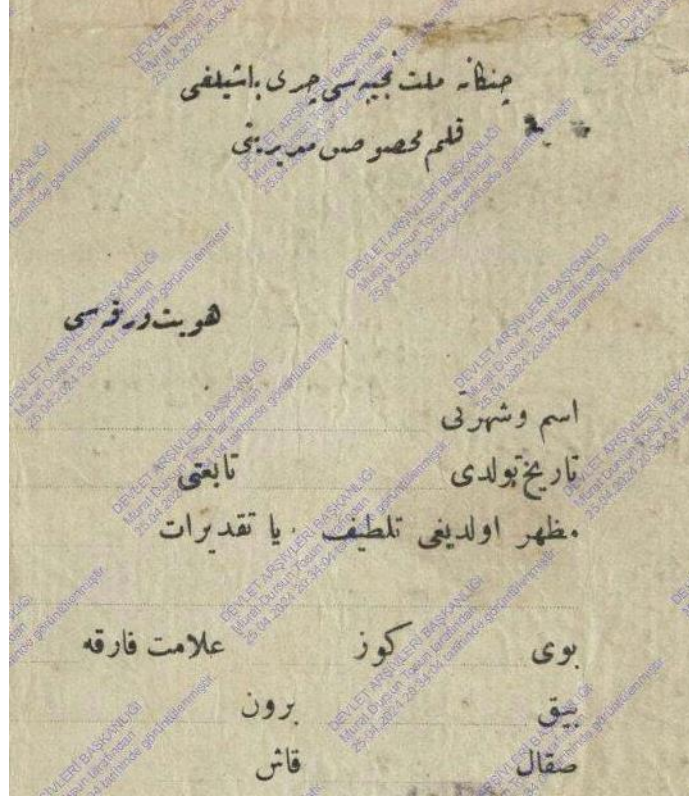 چنكانه ملت نجیبه سی چری باشیلغی
قلم مخصوص مدیریتی
هویت ورقه سی
اسم وشهرتی
تاریخ تولدی تابعتی
مظهر اولدیغی تلطیف یا تقدیرات
بوی كوز علامت فارقه
بیق برون
صقال قاش
DEVLET ARŞİVLERİ BAŞKANLIĞI
Murat Dursun Tosun tarafından
25.04.2024 20:34:04 tarihinde görüntülenmiştir.